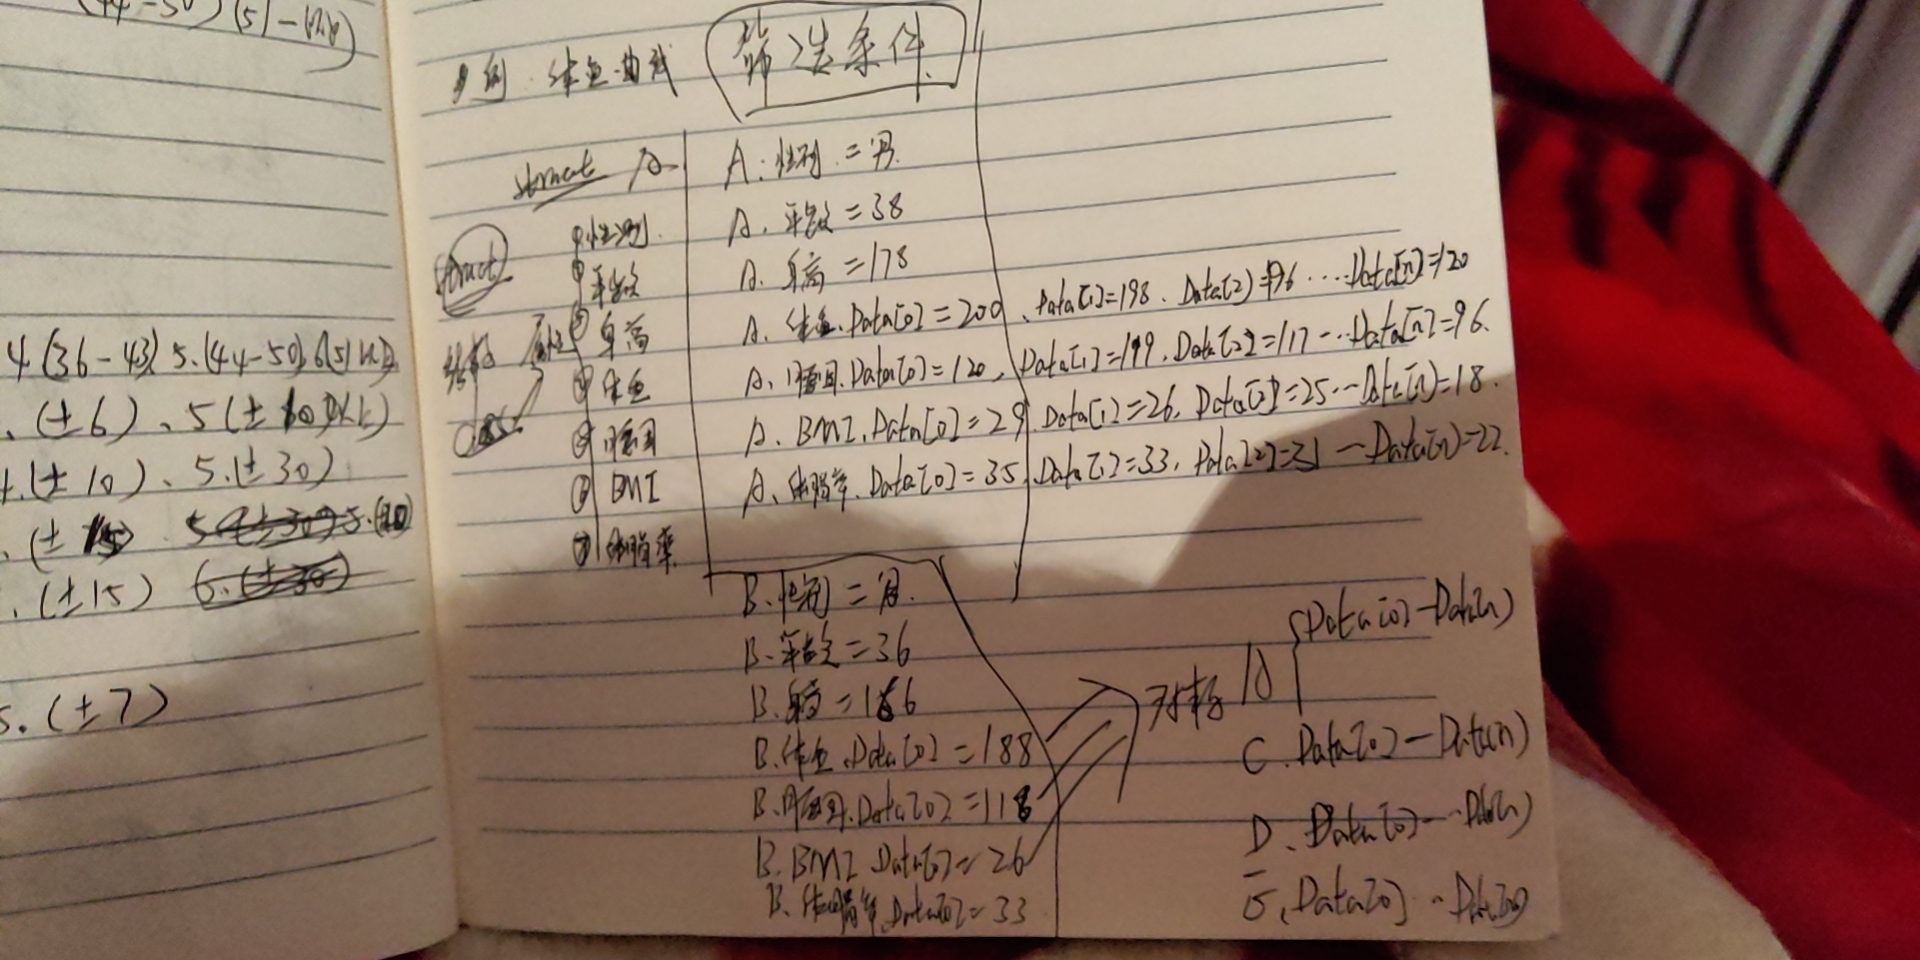 (44-50)(51-
4.(36-43) 5.(44-50) 6(51以上)
、(±6)、5(±10以上)
4.(±10)、5.(±30)
、(±15) 5(±30) 5.(±20)
、(±15) 6.(±30)
5.(±7)
例 体重曲线 筛选条件
struct A
struct
结构
属性
class
①性别
②年龄
③身高
④体重
⑤腰围
⑥BMI
⑦体脂率
A.性别=男.
A.年龄=38
A.身高=178
A.体重.Data[0]=200、Data[1]=198、Data[2]=196····Data[n]=120
A.腰围.Data[0]=120,Data[1]=119.Data[2]=117···Data[n]=96.
A.BMI.Data[0]=29.Data[1]=26.Data[2]=25···Data[n]=18.
A.体脂率.Data[0]=35.Data[1]=33,Data[2]=31—Data[n]=22.
B.性别=男.
B.年龄=36
B.身高=186
B.体重.Data[0]=188
B.腰围.Data[0]=118
B.BMI.Data[0]=26
B.体脂率.Data[0]=33
对标 A {Data[0]-Data[n]
C.Data[0]—Data[n]
D.Data[0]—·Data[n]
E.Data[0]··Data[n]